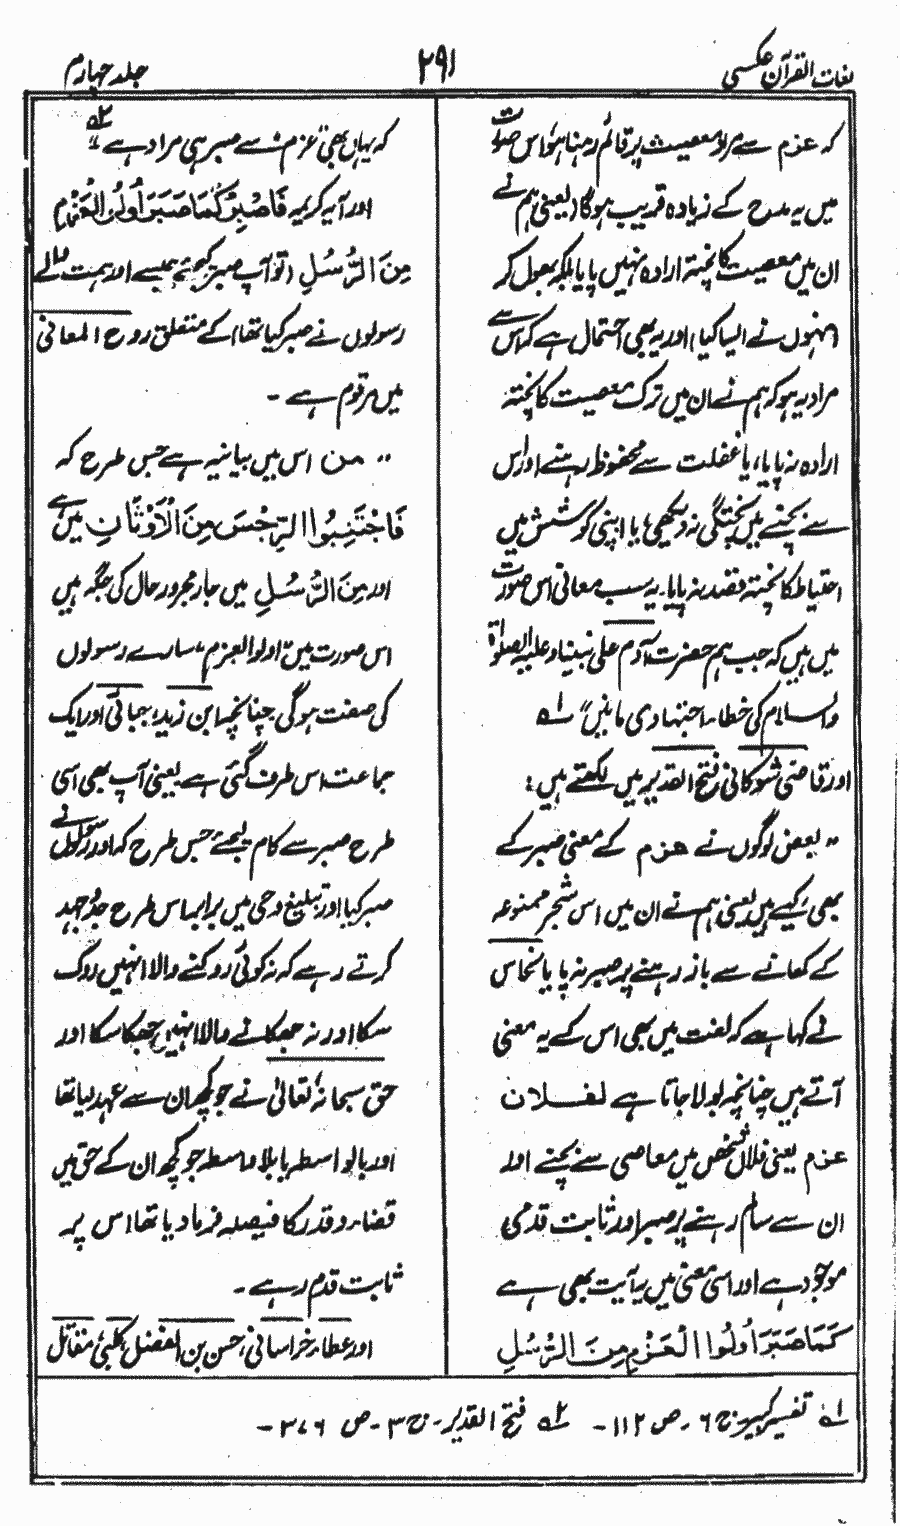 لغات القرآن عکسی
۲۹۱
جلد چہارم
کہ عزم سے مراد معصیت پر قائم رہنا ہو، اس صورت
میں یہ مدح کے زیادہ قریب ہوگا (یعنی ہم نے
ان میں معصیت کا پختہ ارادہ نہیں پایا بلکہ بھول کر
انہوں نے ایسا کیا) اور یہ بھی احتمال ہے کہ اس سے
مراد یہ ہو کہ ہم نے ان میں ترک معصیت کا پختہ
ارادہ نہ پایا، یا غفلت سے محفوظ رہنے اور اس
سے بچنے میں پختگی نہ دیکھی، یا اپنی کوشش میں
احتیاط کا پختہ قصد نہ پایا۔ یہ سب معانی اس صورت
میں ہیں کہ جب ہم حضرت آدم علی نبینا و علیہ الصلوٰۃ
والسلام کی خطاء اجتہادی مانیں" لہ
اور قاضی شوکانی فتح القدیر میں لکھتے ہیں:
"بعض لوگوں نے عزم کے معنی صبر کے
بھی کیے ہیں یعنی ہم نے ان میں اس شجر ممنوعہ
کے کھانے سے باز رہنے پر صبر نہ پایا نحاس
نے کہا ہے کہ لغت میں بھی اس کے یہ معنی
آتے ہیں چنانچہ بولا جاتا ہے لفلان
عزم یعنی فلاں شخص میں معاصی سے بچنے اور
ان سے سالم رہنے پر صبر اور ثابت قدمی
موجود ہے اور اسی معنی میں یہ آیت بھی ہے
كَمَا صَبَرَ اُولُوا الْعَزْمِ مِنَ الرُّسُلِ
کہ یہاں بھی "عزم" سے صبر ہی مراد ہے" ۲ہ
اور آیہ کریمہ فَاصْبِرْ كَمَا صَبَرَ اُولُوا الْعَزْمِ
مِنَ الرُّسُلِ (تو آپ صبر کیجئے جیسے اور ہمت والے
رسولوں نے صبر کیا تھا) کے متعلق روح المعانی
میں مرقوم ہے۔
"مِن اس میں بیانیہ ہے جس طرح کہ
فَاجْتَنِبُوا الرِّجْسَ مِنَ الْاَوْثَانِ میں ہے
اور مِنَ الرُّسُلِ میں جار مجرور حال کی جگہ ہیں
اس صورت میں "اولوا العزم" سارے رسولوں
کی صفت ہوگی چنانچہ ابن زید، جبائی اور ایک
جماعت اس طرف گئی ہے یعنی آپ بھی اسی
طرح صبر سے کام لیجئے جس طرح کہ اور رسولوں نے
صبر کیا اور تبلیغ وحی میں برابر اس طرح جدوجہد
کرتے رہے کہ نہ کوئی روکنے والا انہیں روک
سکا اور نہ جھکانے والا انہیں جھکا سکا اور
حق سبحانہٗ تعالیٰ نے جو کچھ ان سے عہد لیا تھا
اور بالواسطہ یا بلا واسطہ جو کچھ ان کے حق میں
قضاء و قدر کا فیصلہ فرما دیا تھا اس پر
ثابت قدم رہے۔
اور عطاء خراسانی، حسن بن الفضل، کلبی، مقاتل
لہ تفسیر کبیر ج ۶ ۔ ص ۱۱۲ ۔ ۲ہ فتح القدیر۔ ج ۳ ۔ ص ۳۷۶ ۔